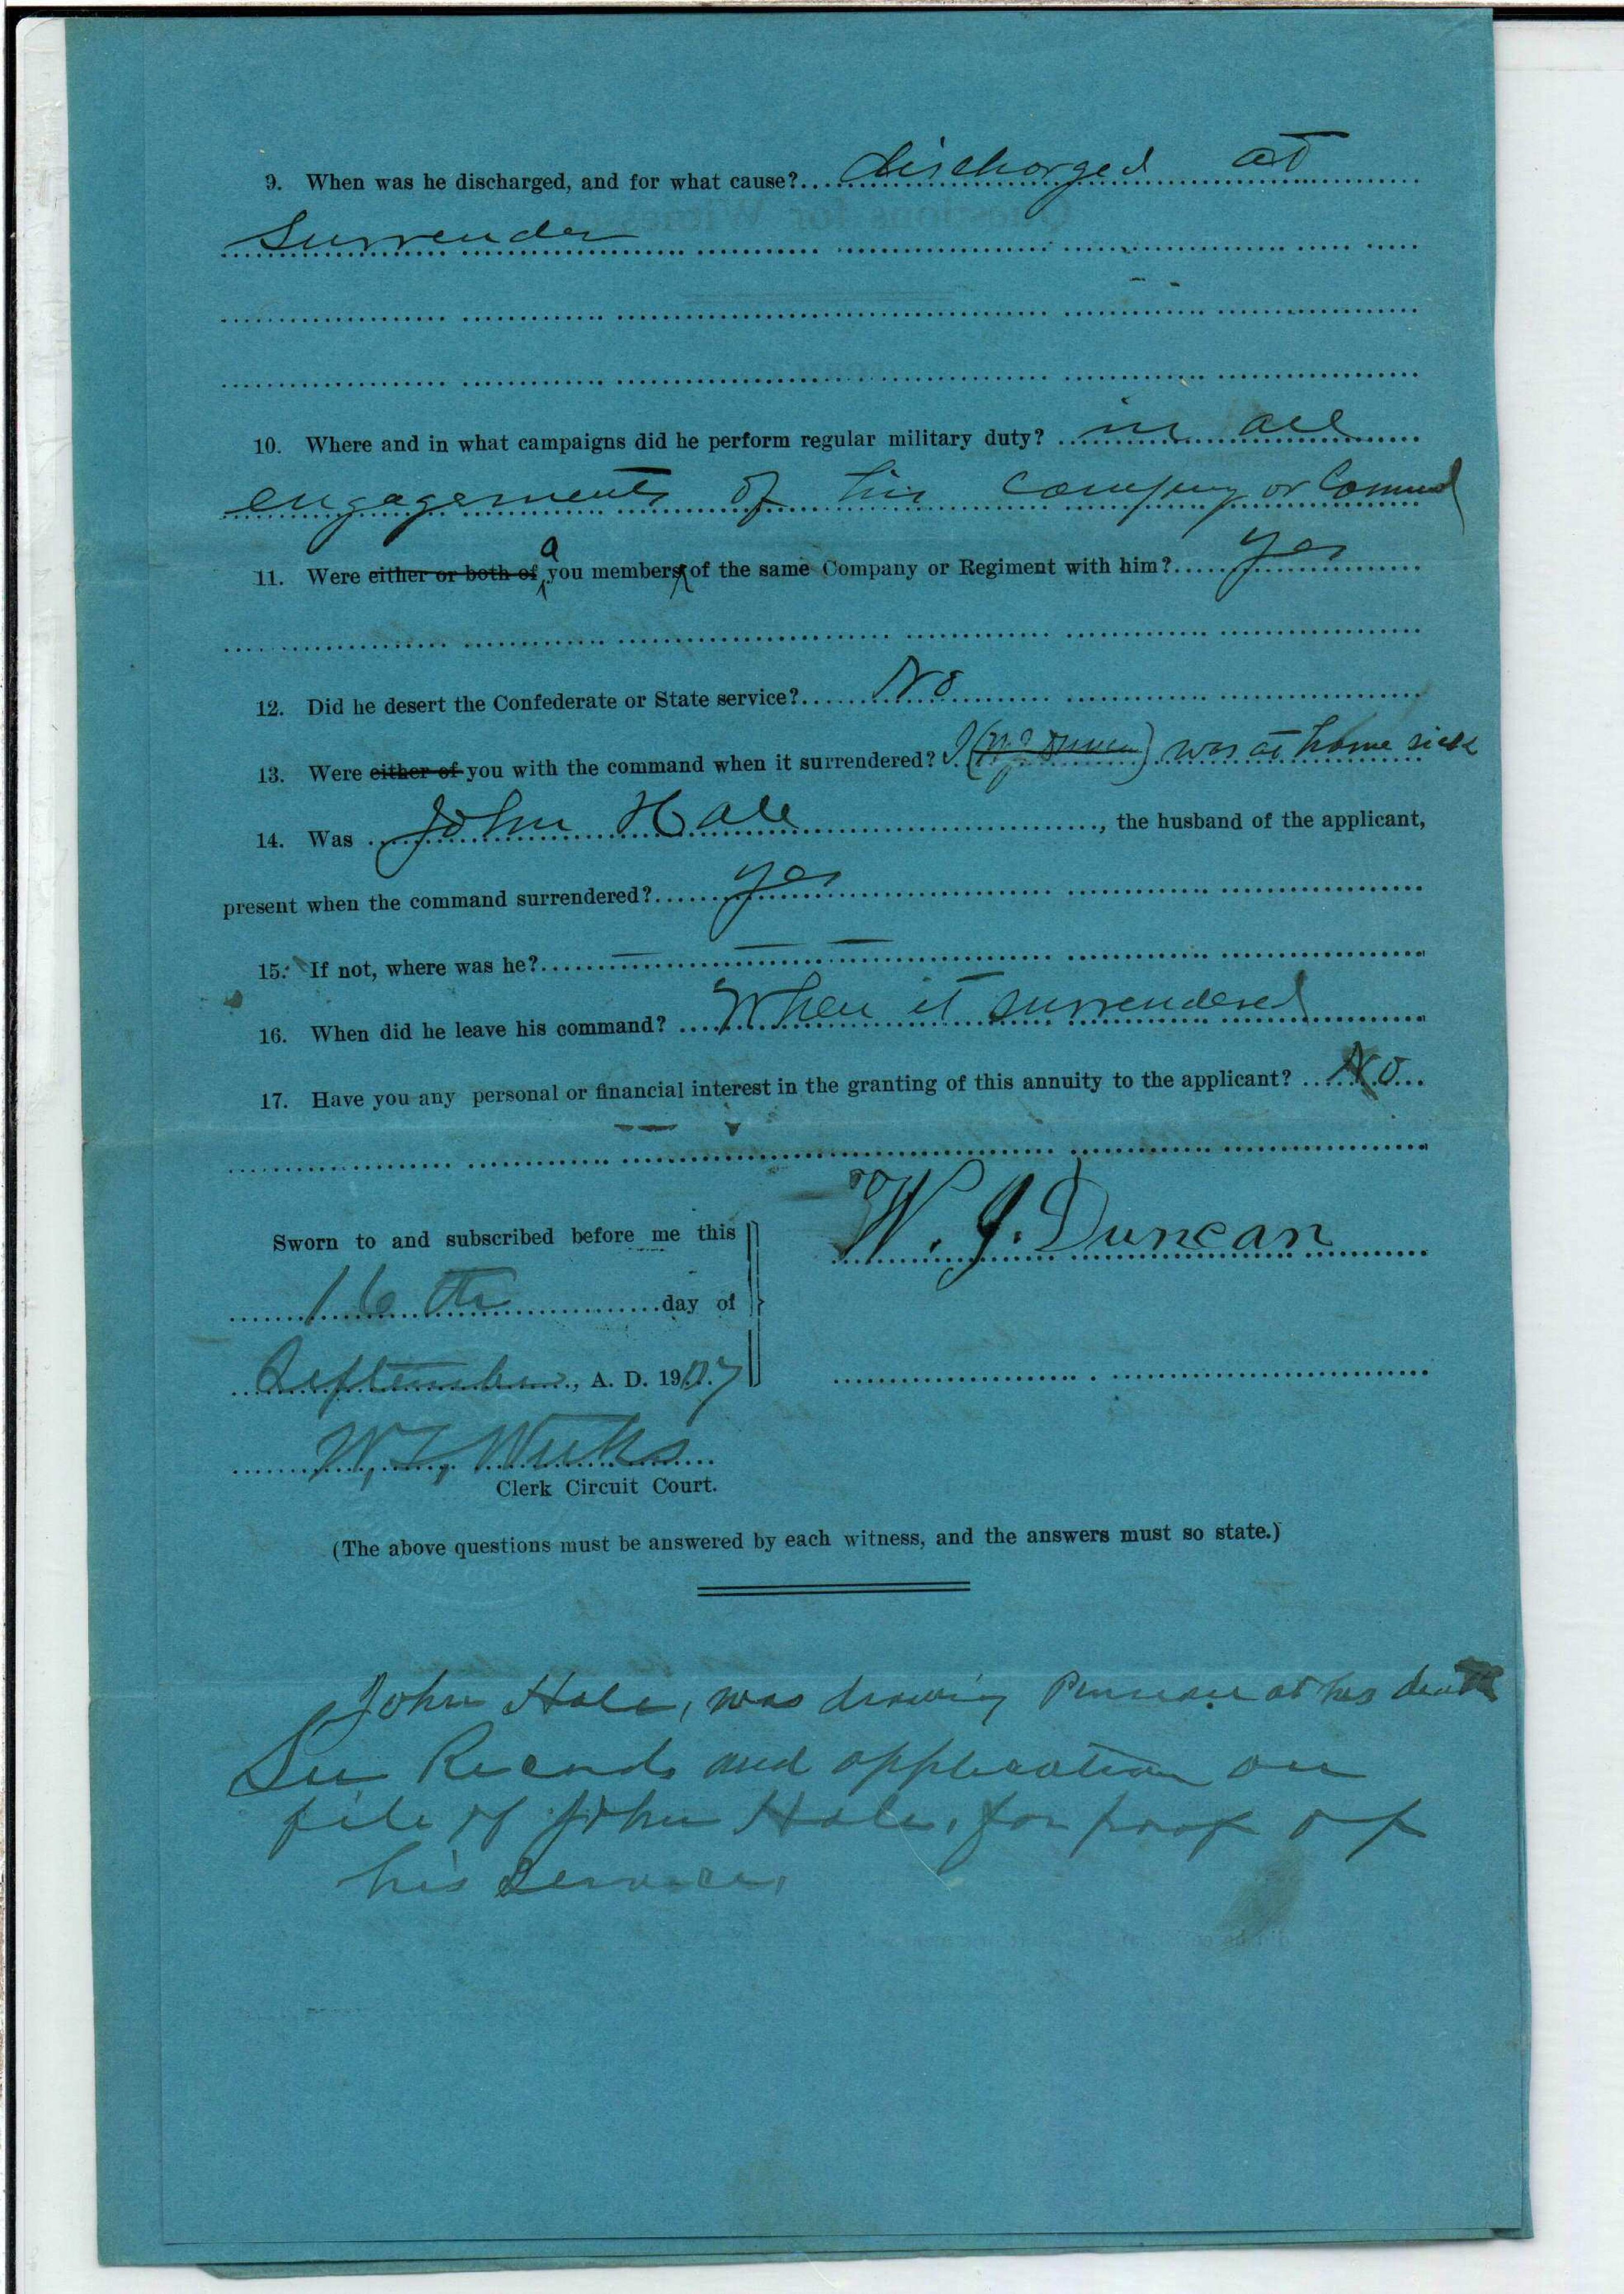 9. When was he discharged, and for what cause? discharged at
surrender
10. Where and in what campaigns did he perform regular military duty? in all
engagements of his company or Command
11. Were either or both of a you members of the same Company or Regiment with him? yes
12. Did he desert the Confederate or State service? No
13. Were either of you with the command when it surrendered? I (W J Duncan) was at home sick
14. Was John Hale, the husband of the applicant,
present when the command surrendered? yes
15. If not, where was he? — — —
16. When did he leave his command? When it surrendered
17. Have you any personal or financial interest in the granting of this annuity to the applicant? No
Sworn to and subscribed before me this
W. J. Duncan
16th day of
September, A. D. 1907
Clerk Circuit Court.
(The above questions must be answered by each witness, and the answers must so state.)
John Hale, was drawing Pension at his death
See Records and application on
file of John Hale, for proof of
his service,